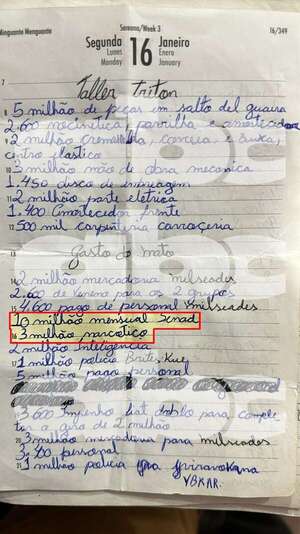 Minguante Menguante
Semana/Week 3
16/349
Segunda
Lunes
Monday
16
Janeiro
Enero
January
7
Taller Triton
8 5 milhão de peças im salto del guaira
2.600 mecinetica parrilha e amortecidor
9 2 milhão Cremallda, correia, Buxa,
centro plastico
10 3 milhão mão de obra mecanica
1.450 disco de imbreagem
11 2 milhão parte eletrica
1.400 amortecedor frente
12 500 mil carpinteria carroçeria
13
Gasto do mato
14 2 milhão mercadoria milseades
2,600 de veneno para os 2 grupos
4,600 pago de personal milseades
10 milhão mensual Senad
16 3 milhão narcotico
2 milhão inteligencia
17 1 milhão policia Brites Kue
5 milhão pago personal
3 600 impenho fiat doblo para comple
tar a gira de 2 milhão
20 3 milhão mercadoria para milseades
3,400 personal
21 1 milhão policia
YBKAR.